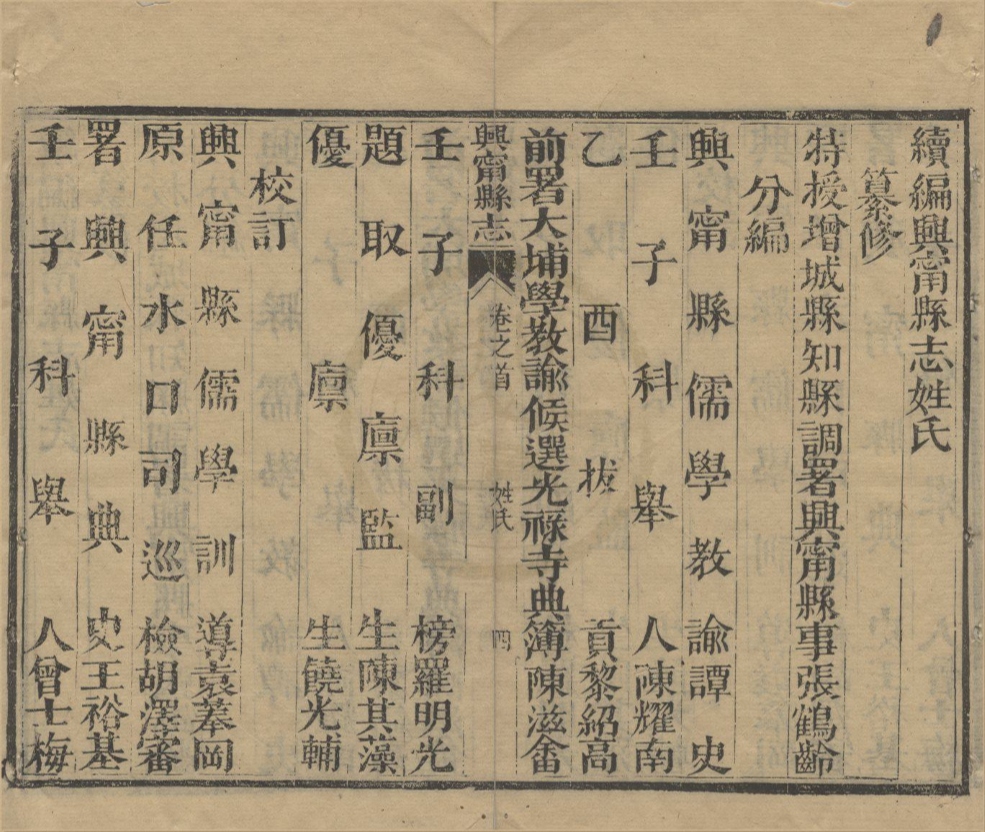 續編興甯縣志姓氏
纂修
特授增城縣知縣調署興甯縣事張鶴齡
分編
興甯縣儒學教諭譚史
壬子科舉人陳耀南
乙酉拔貢黎紹高
前署大埔學教諭候選光祿寺典簿陳滋畬
興甯縣志 卷之首 姓氏 四
壬子科副榜羅明光
題取優廩監生陳其藻
優廩生饒光輔
校訂
興甯縣儒學訓導袁摹岡
原任水口司巡檢胡澤審
署興甯縣典史王裕基
壬子科舉人曾士梅